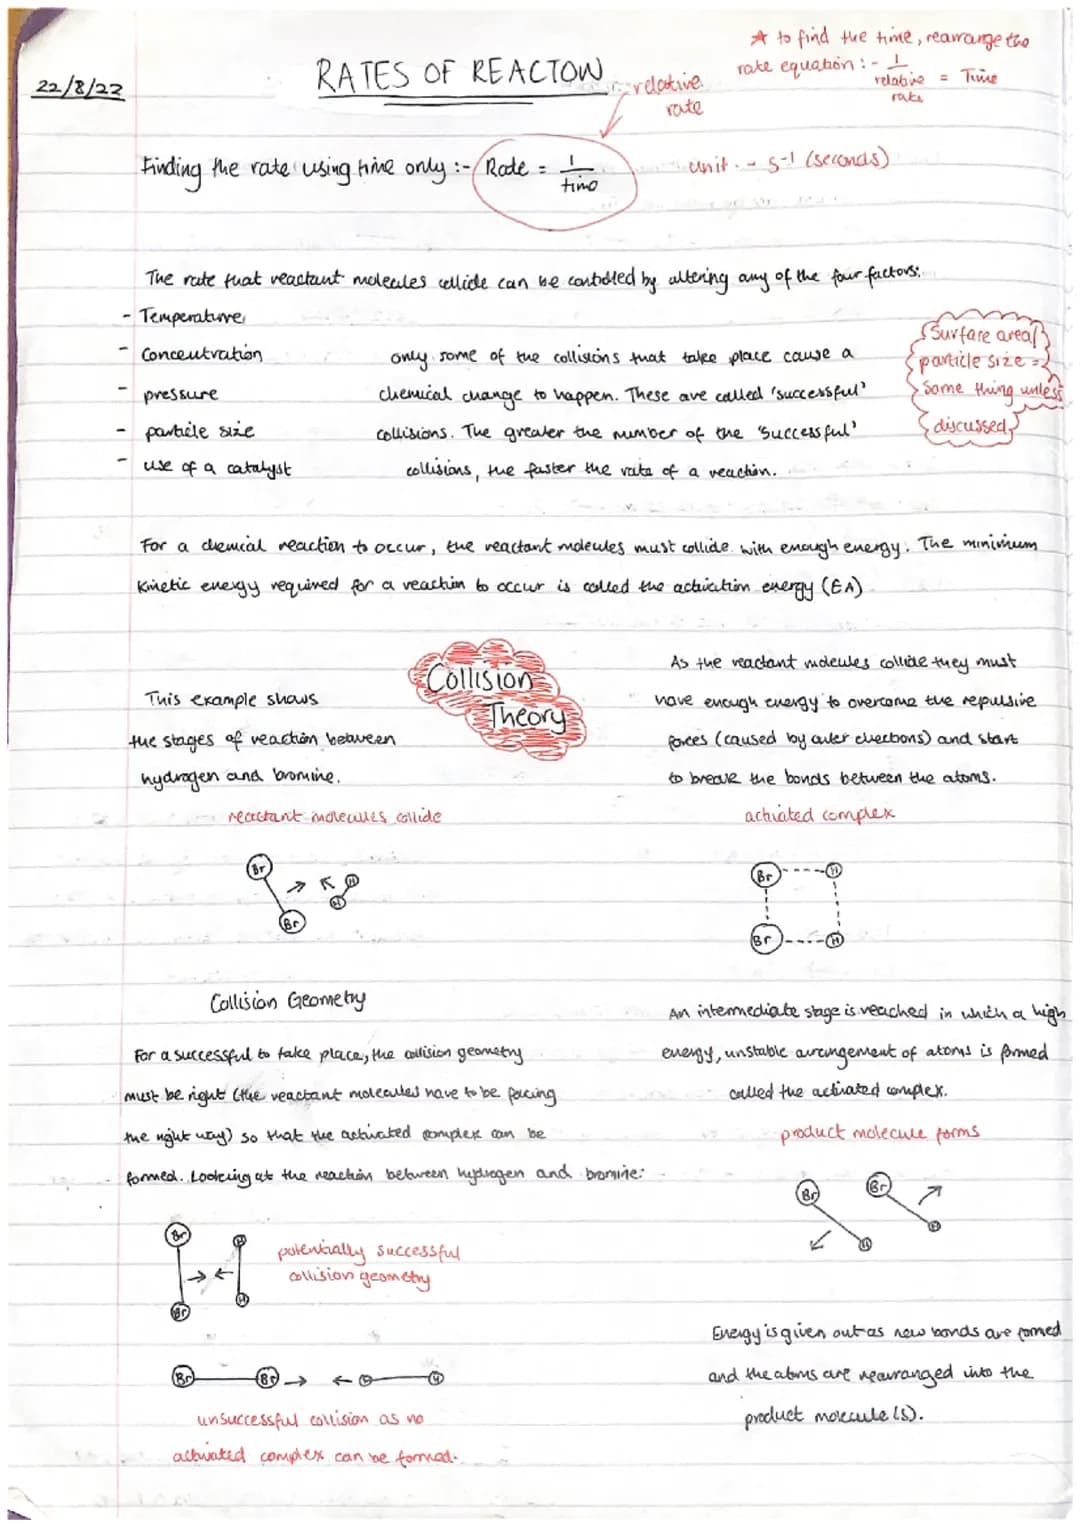 * to find the time, rearrange the
rate equation :- 1 / relative rate = Time
22/8/22
RATES OF REACTON
relative
rate
Finding the rate using time only :- Rate = 1 / time
unit :- s-1 (seconds)
The rate that reactant molecules collide can be controlled by altering any of the four factors:
- Temperature
- Concentration
- pressure
- particle size
- use of a catalyst
only some of the collisions that take place cause a
chemical change to happen. These are called 'successful'
collisions. The greater the number of the 'successful'
collisions, the faster the rate of a reaction.
Surface area/
particle size =
Same thing unless
discussed
For a chemical reaction to occur, the reactant molecules must collide with enough energy. The minimum
kinetic energy required for a reaction to occur is called the activation energy (EA)
Collision
Theory
This example shows
the stages of reaction between
hydrogen and bromine.
reactant molecules collide
Br
H
H
Br
As the reactant molecules collide they must
have enough energy to overcome the repulsive
forces (caused by outer electrons) and start
to break the bonds between the atoms.
activated complex
Br H
Br H
Collision Geometry
For a successful to take place, the collision geometry
must be right (the reactant molecules have to be facing
the right way) so that the activated complex can be
formed. Looking at the reaction between hydrogen and bromine:
Br H
Br H
potentially successful
collision geometry
Br Br H H
unsuccessful collision as no
activated complex can be formed.
An intermediate stage is reached in which a high
energy, unstable arrangement of atoms is formed
called the activated complex.
product molecule forms
Br Br
H H
Energy is given out as new bonds are formed
and the atoms are rearranged into the
product molecule(s).